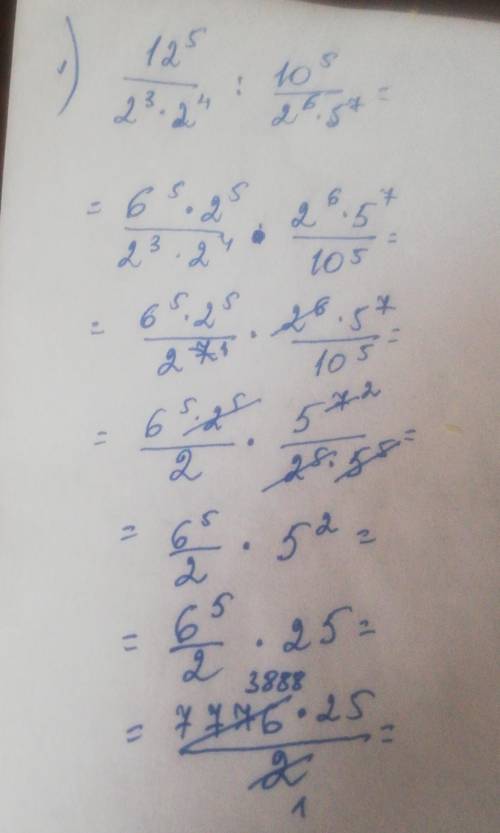 1) 12^5 / (2^3 · 2^4) : 10^5 / (2^6 · 5^7) =
= (6^5 · 2^5) / (2^3 · 2^4) · (2^6 · 5^7) / 10^5 =
= (6^5 · 2^5) / 2^7 1 · (2^6 · 5^7) / 10^5 =
= (6^5 · 2^5) / 2 · 5^7 2 / (2^5 · 5^5) =
= 6^5 / 2 · 5^2 =
= 6^5 / 2 · 25 =
3888
= (7776 · 25) / 2 =
1